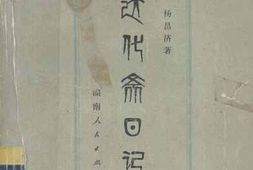 杨昌济著
达化斋日记
湖南人民出